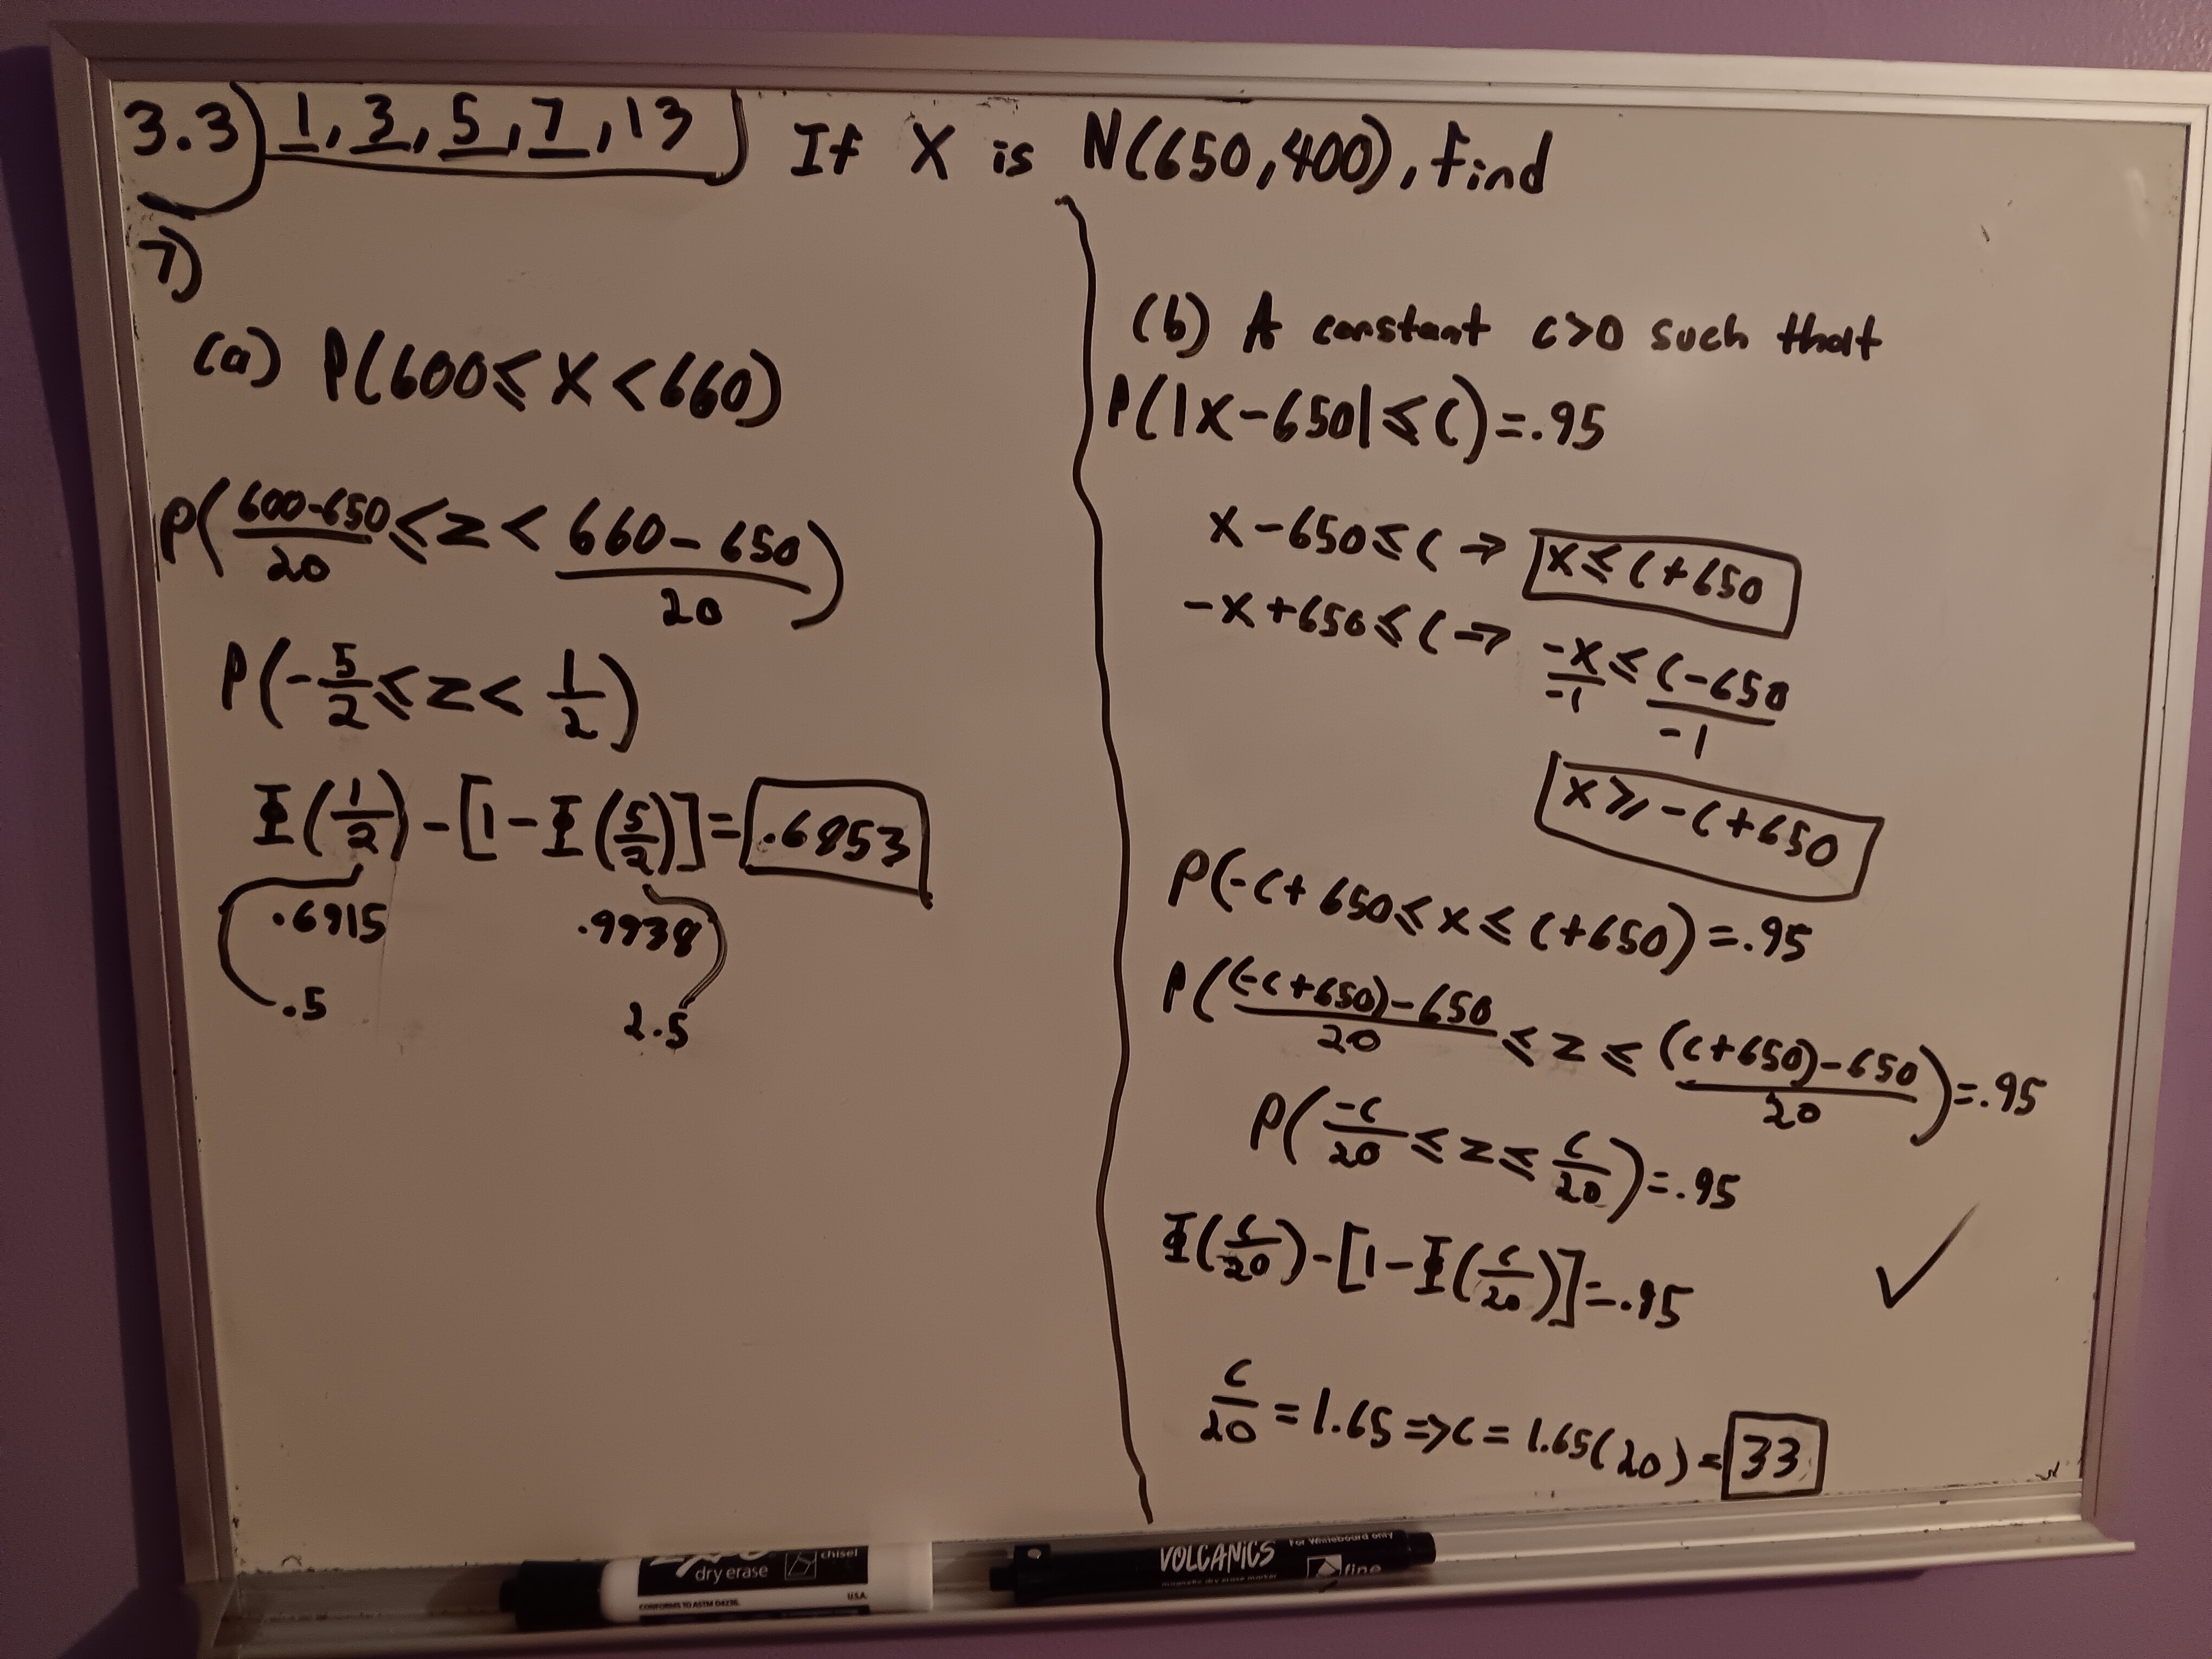 3.3) 1, 3, 5, 7, 13) If X is N(650,400), find
7)
(a) P(600≤X<660)
P((600-650)/20 ≤ z < (660-650)/20)
P(-5/2 ≤ z < 1/2)
Φ(1/2) - [1-Φ(5/2)] = .6853
.6915 .9938
.5 2.5
(b) A constant c>0 such that
P(|X-650| ≤ c) = .95
x-650 ≤ c → x ≤ c+650
-x+650 ≤ c → -x/-1 ≤ (c-650)/-1
x ≥ -c+650
P(-c+650 ≤ x ≤ c+650) = .95
P(((-c+650)-650)/20 ≤ z ≤ ((c+650)-650)/20) = .95
P(-c/20 ≤ z ≤ c/20) = .95
Φ(c/20) - [1-Φ(c/20)] = .95 ✓
c/20 = 1.65 ⇒ c = 1.65(20) = 33
dry erase
chisel
CONFORMS TO ASTM D4236
U.S.A.
VOLCANICS
For Whiteboard only
magnetic dry erase marker
fine